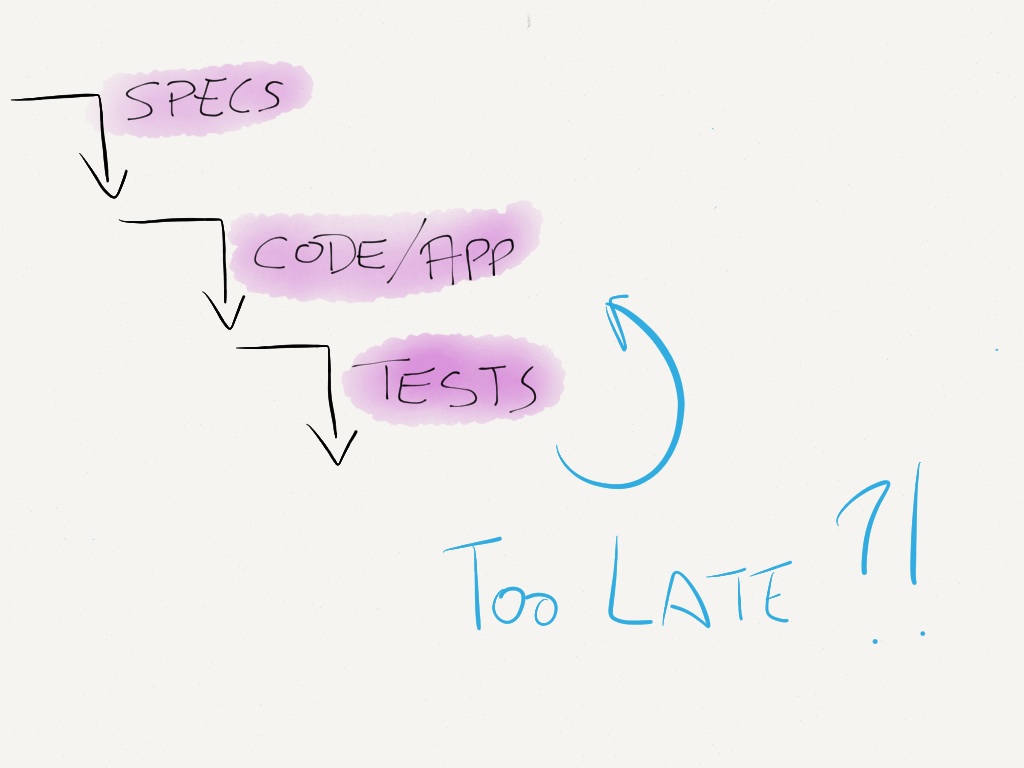 SPECS
CODE/APP
TESTS
TOO LATE ?!